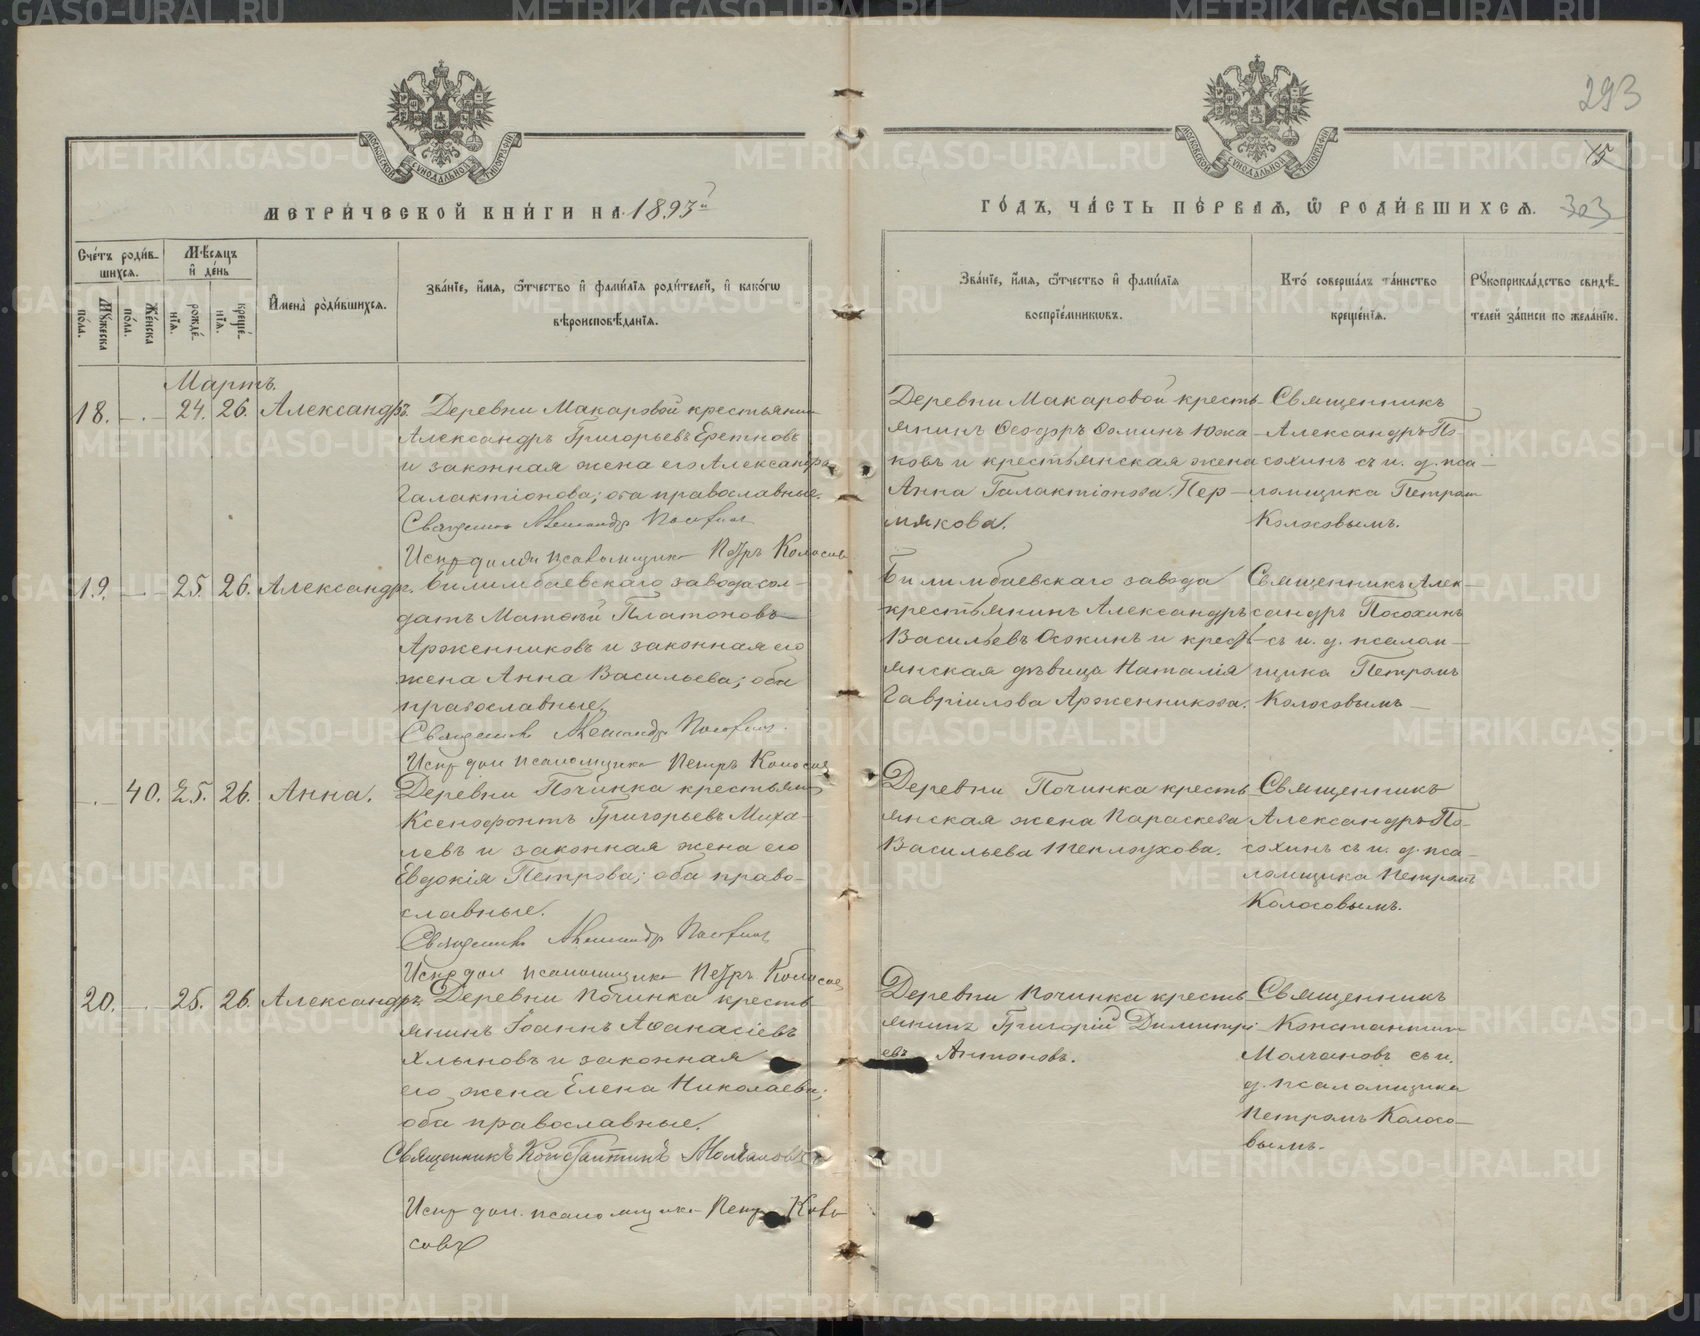 293
15
303
МЕТРИ́ЧЕСКОЙ КНИ́ГИ НА 1893й
ГО́ДЪ, ЧА́СТЬ ПЕ́РВАѦ, Ѽ РОДИ́ВШИХСѦ.
Сче́тъ роди́в-
шихсѧ.
Мꙋжеска по́ла.
Же́нска по́ла.
Мѣ́сѧцъ и҆ де́нь
рожде́нїѧ.
креще́нїѧ.
И҆мена̀ роди́вшихсѧ.
Зва́нїе, и҆́мѧ, ѻ҆́тчество и҆ фами́лїѧ роди́телей, и҆ како́гѡ
вѣроисповѣ́данїѧ.
Зва́нїе, и҆́мѧ, ѻ҆́тчество и҆ фами́лїѧ
воспрїе́мникѡвъ.
Кто̀ соверша́лъ та́инство
креще́нїѧ.
Рꙋкоприкла́дство свидѣ́-
телей за́писи по жела́нїю.
Мартъ.
18. — 24. 26. Александръ.
Деревни Макаровой крестьянин
Александръ Григорьевъ
и законная жена его Александра
Галактіонова; оба православные.
Священникъ Александръ Посохинъ
Испр долж псаломщика Петръ Колосовъ
Деревни Макаровой кресть-
янинъ Ѳеодоръ Ѳоминъ Южа-
ковъ и крестьянская жена
Анна Галактіонова Пер-
мякова.
Священникъ
Александръ По-
сохинъ съ и. д. пса-
ломщика Петром
Колосовымъ.
19. — 25. 26. Александръ.
Билимбаевскаго завода сол-
датъ Матѳей Платоновъ
Арженниковъ и законная его
жена Анна Васильева; оба
православные.
Священникъ Александръ Посохинъ
Испр дол псаломщика Петръ Колосов
Билимбаевскаго завода
крестьянинъ Александръ
Васильевъ Осокинъ и кресть-
янская дѣвица Наталія
Гавріилова Арженникова.
Священникъ Алек-
сандръ Посохинъ
съ и. д. псалом-
щика Петромъ
Колосовымъ
— 40. 25. 26. Анна.
Деревни Починка крестьян
Ксенофонтъ Григорьевъ Миха-
левъ и законная жена его
Евдокія Петрова; оба право-
славные.
Священникъ Александръ Посохинъ
Испр дол псаломщика Петръ Колосов
Деревни Починка кресть-
янская жена Параскева
Васильева Теплоухова.
Священникъ
Александръ По-
сохинъ съ и. д. пса-
ломщика Петромъ
Колосовымъ.
20. — 25. 26. Александръ.
Деревни Починка кресть-
янинъ Іоаннъ Аѳанасіевъ
Хлыновъ и законная
его жена Елена Николаева;
оба православные.
Священникъ Константинъ Молчановъ
Испр дол. псаломщика Петръ Коло-
совъ
Деревни Починка кресть-
янинъ Григорій Димитрі-
евъ Антоновъ.
Священникъ
Константин
Молчановъ съ и.
д. псаломщика
Петромъ Колосо-
вымъ.
METRIKI.GASO-URAL.RU